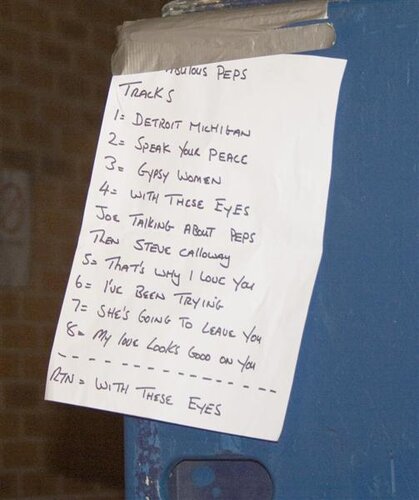 PEPS
TRACKS
1= DETROIT MICHIGAN
2= SPEAK YOUR PEACE
3= GYPSY WOMEN
4= WITH THESE EYES
JOE TALKING ABOUT PEPS
THEN STEVE CALLOWAY
5= THAT'S WHY I LOVE YOU
6= I'VE BEEN TRYING
7= SHE'S GOING TO LEAVE YOU
8= MY LOVE LOOKS GOOD ON YOU
RTN= WITH THESE EYES